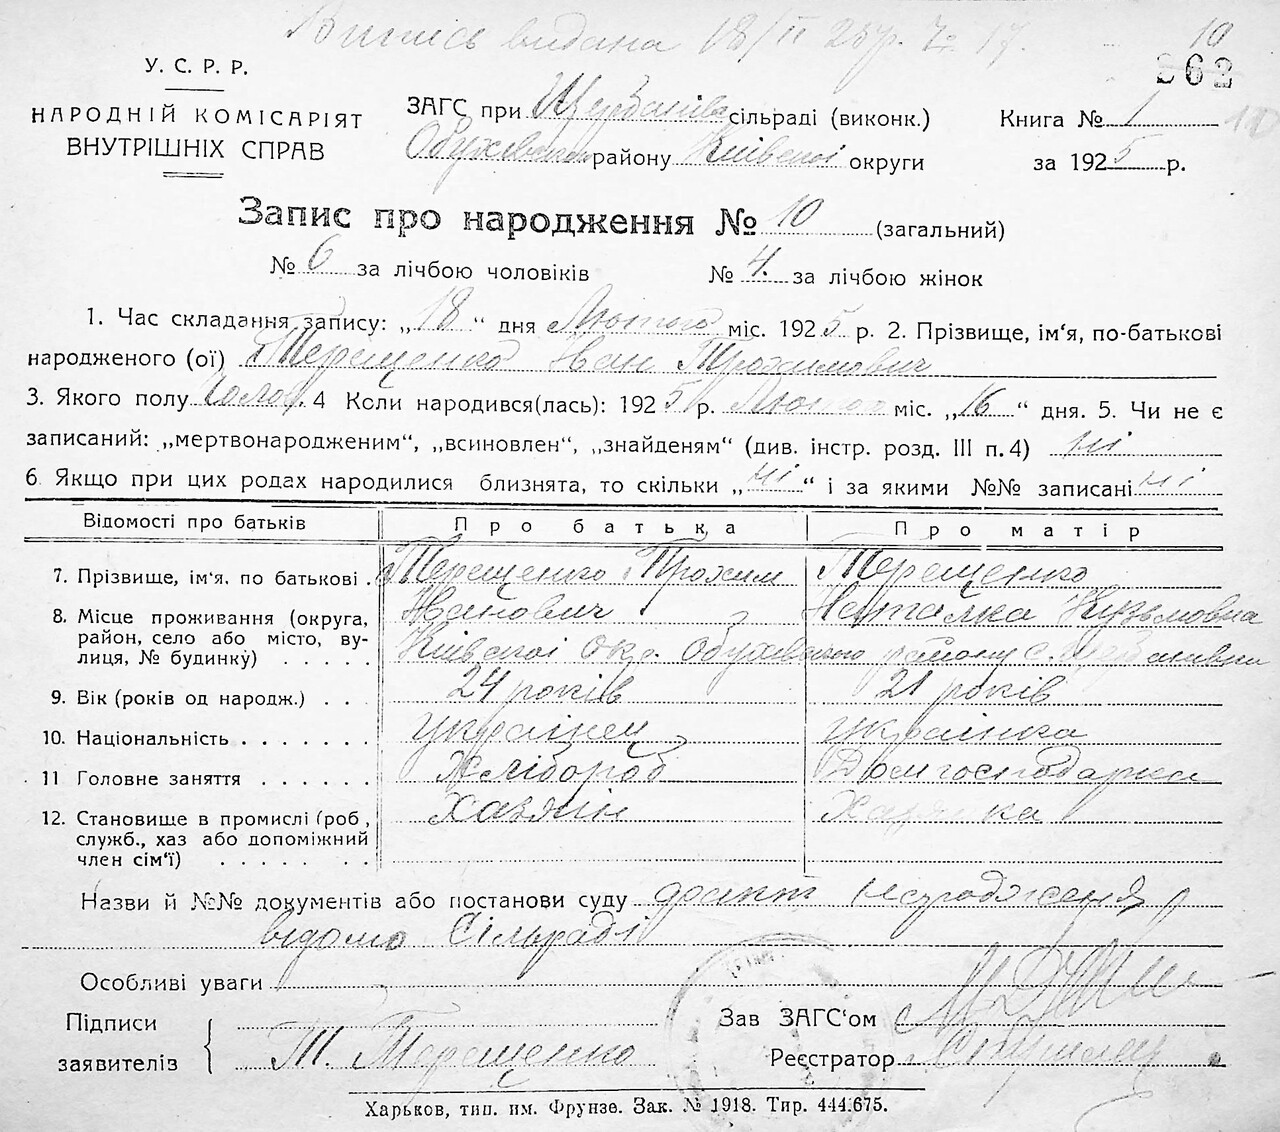 Випись видана 18/II 25 р. № 17.
10
262
У. С. Р. Р.
НАРОДНІЙ КОМІСАРІЯТ
ВНУТРІШНІХ СПРАВ
ЗАГС при Щербанівс сільраді (виконк.)
Обухівськ району Київської округи
Книга № 1
за 1925 р.
Запис про народження № 10 (загальний)
№ 6 за лічбою чоловіків № 4. за лічбою жінок
1. Час складання запису: „18“ дня Лютого міс. 1925 р. 2. Прізвище, ім'я, по-батькові
народженого (ої) Терещенко Іван Трохимович
3. Якого полу Чолов. 4 Коли народився(лась): 1925 р. Лютого міс. „16“ дня. 5. Чи не є
записаний: „мертвонародженим“, „всиновлен“, „знайденям“ (див. інстр. розд. III п. 4) ні
6. Якщо при цих родах народилися близнята, то скільки „ні“ і за якими №№ записані ні
Відомості про батьків Про батька Про матір
7. Прізвище, ім'я. по батькові. Терещенко Трохим Терещенко
Іванович Наталка Кузьмовна
8. Місце проживання (округа,
район, село або місто, ву-
лиця, № будинку) . . . . . Київської окр. Обухівського району с.
9. Вік (років од народж.) . . . 24 років 21 років
10. Національність . . . . . . . українец українка
11 Головне заняття . . . . . . Хлібороб Домгосподарка
12. Становище в промислі (роб., Хазяїн Хазяйка
служб., хаз або допоміжний
член сім'ї) . . . . . . .
Назви й №№ документів або постанови суду факт народження
відомо Сільраді
Особливі уваги
Підписи
заявителів
Т. Терещенко
Зав ЗАГС'ом
Реєстратор
Харьков, тип. им. Фрунзе. Зак. № 1918. Тир. 444.675.